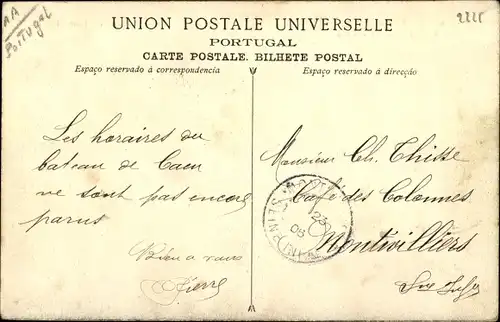 AA
Portugal
UNION POSTALE UNIVERSELLE
PORTUGAL
CARTE POSTALE. BILHETE POSTAL
Espaço reservado á correspondencia
Espaço reservado á direcção
Les horaires du
bateau de Caen
ne sont pas encore
parus
Bien a vous
Pierre
Monsieur Ch. Thisse
Café des Colonnes
Montivilliers
Sne Infre